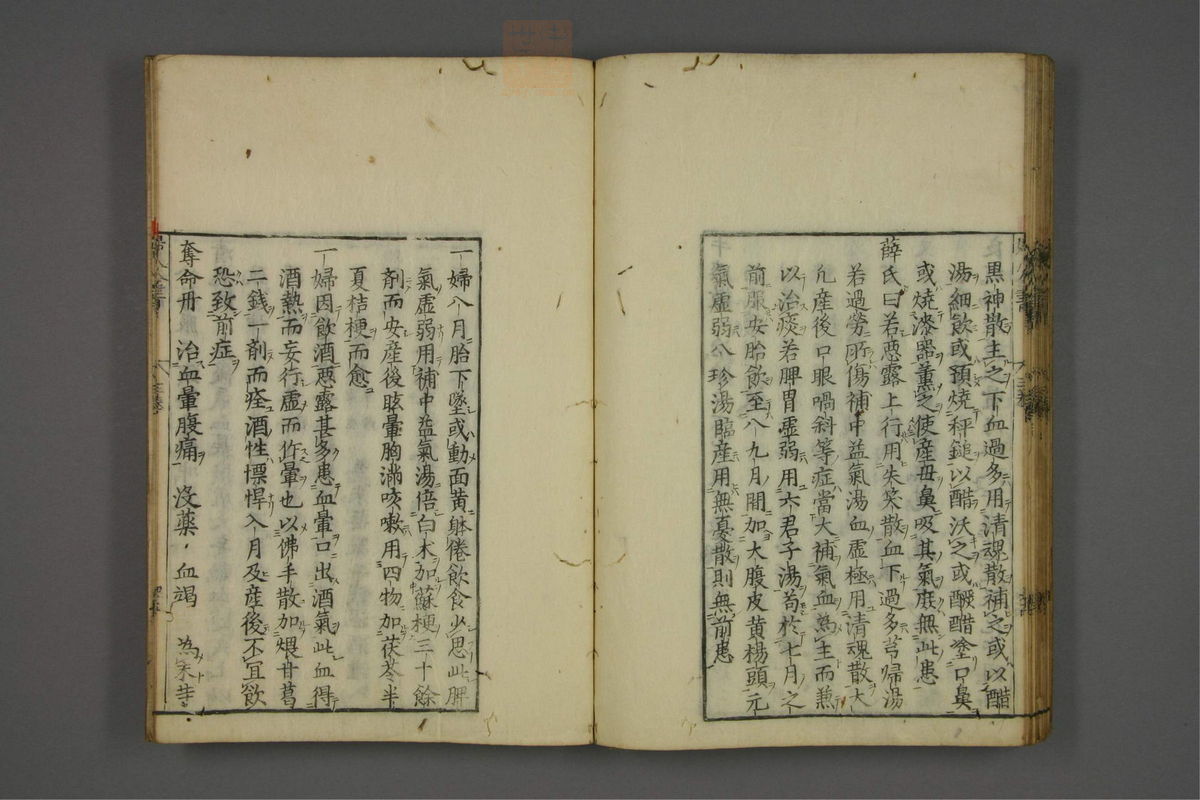 黒神散主之下血過多用清魂散補之或以醋
湯細飲或預燒秤鎚以醋沃之或釅醋塗口鼻
或燒漆器薰之使產母鼻吸其氣庶無此患
薛氏曰若惡露上行用失笑散血下過多芎歸湯
若過勞所傷補中益氣湯血虛極用清魂散大
凢產後口眼喎斜等症當大補氣血為主而兼
以治痰若脾胃虛弱用六君子湯苟於七月之
前服安胎飲至八九月間加大腹皮黄楊頭元
氣虛弱八珍湯臨產用無憂散則無前患
一婦八月胎下墜或動面黄躰倦飲食少思此脾
氣虛弱用補中益氣湯倍白朮加蘇梗三十餘
剤而安產後眩暈胸滿咳嗽用四物加茯苓半
夏桔梗而愈
一婦因飲酒惡露甚多患血暈口出酒氣此血得
酒熱而妄行虛而作暈也以佛手散加煨甘葛
二錢一剤而痊酒性慓悍入月及產後不宜飲
恐致前症
奪命丹 治血暈腹痛 沒藥 血竭 為末等